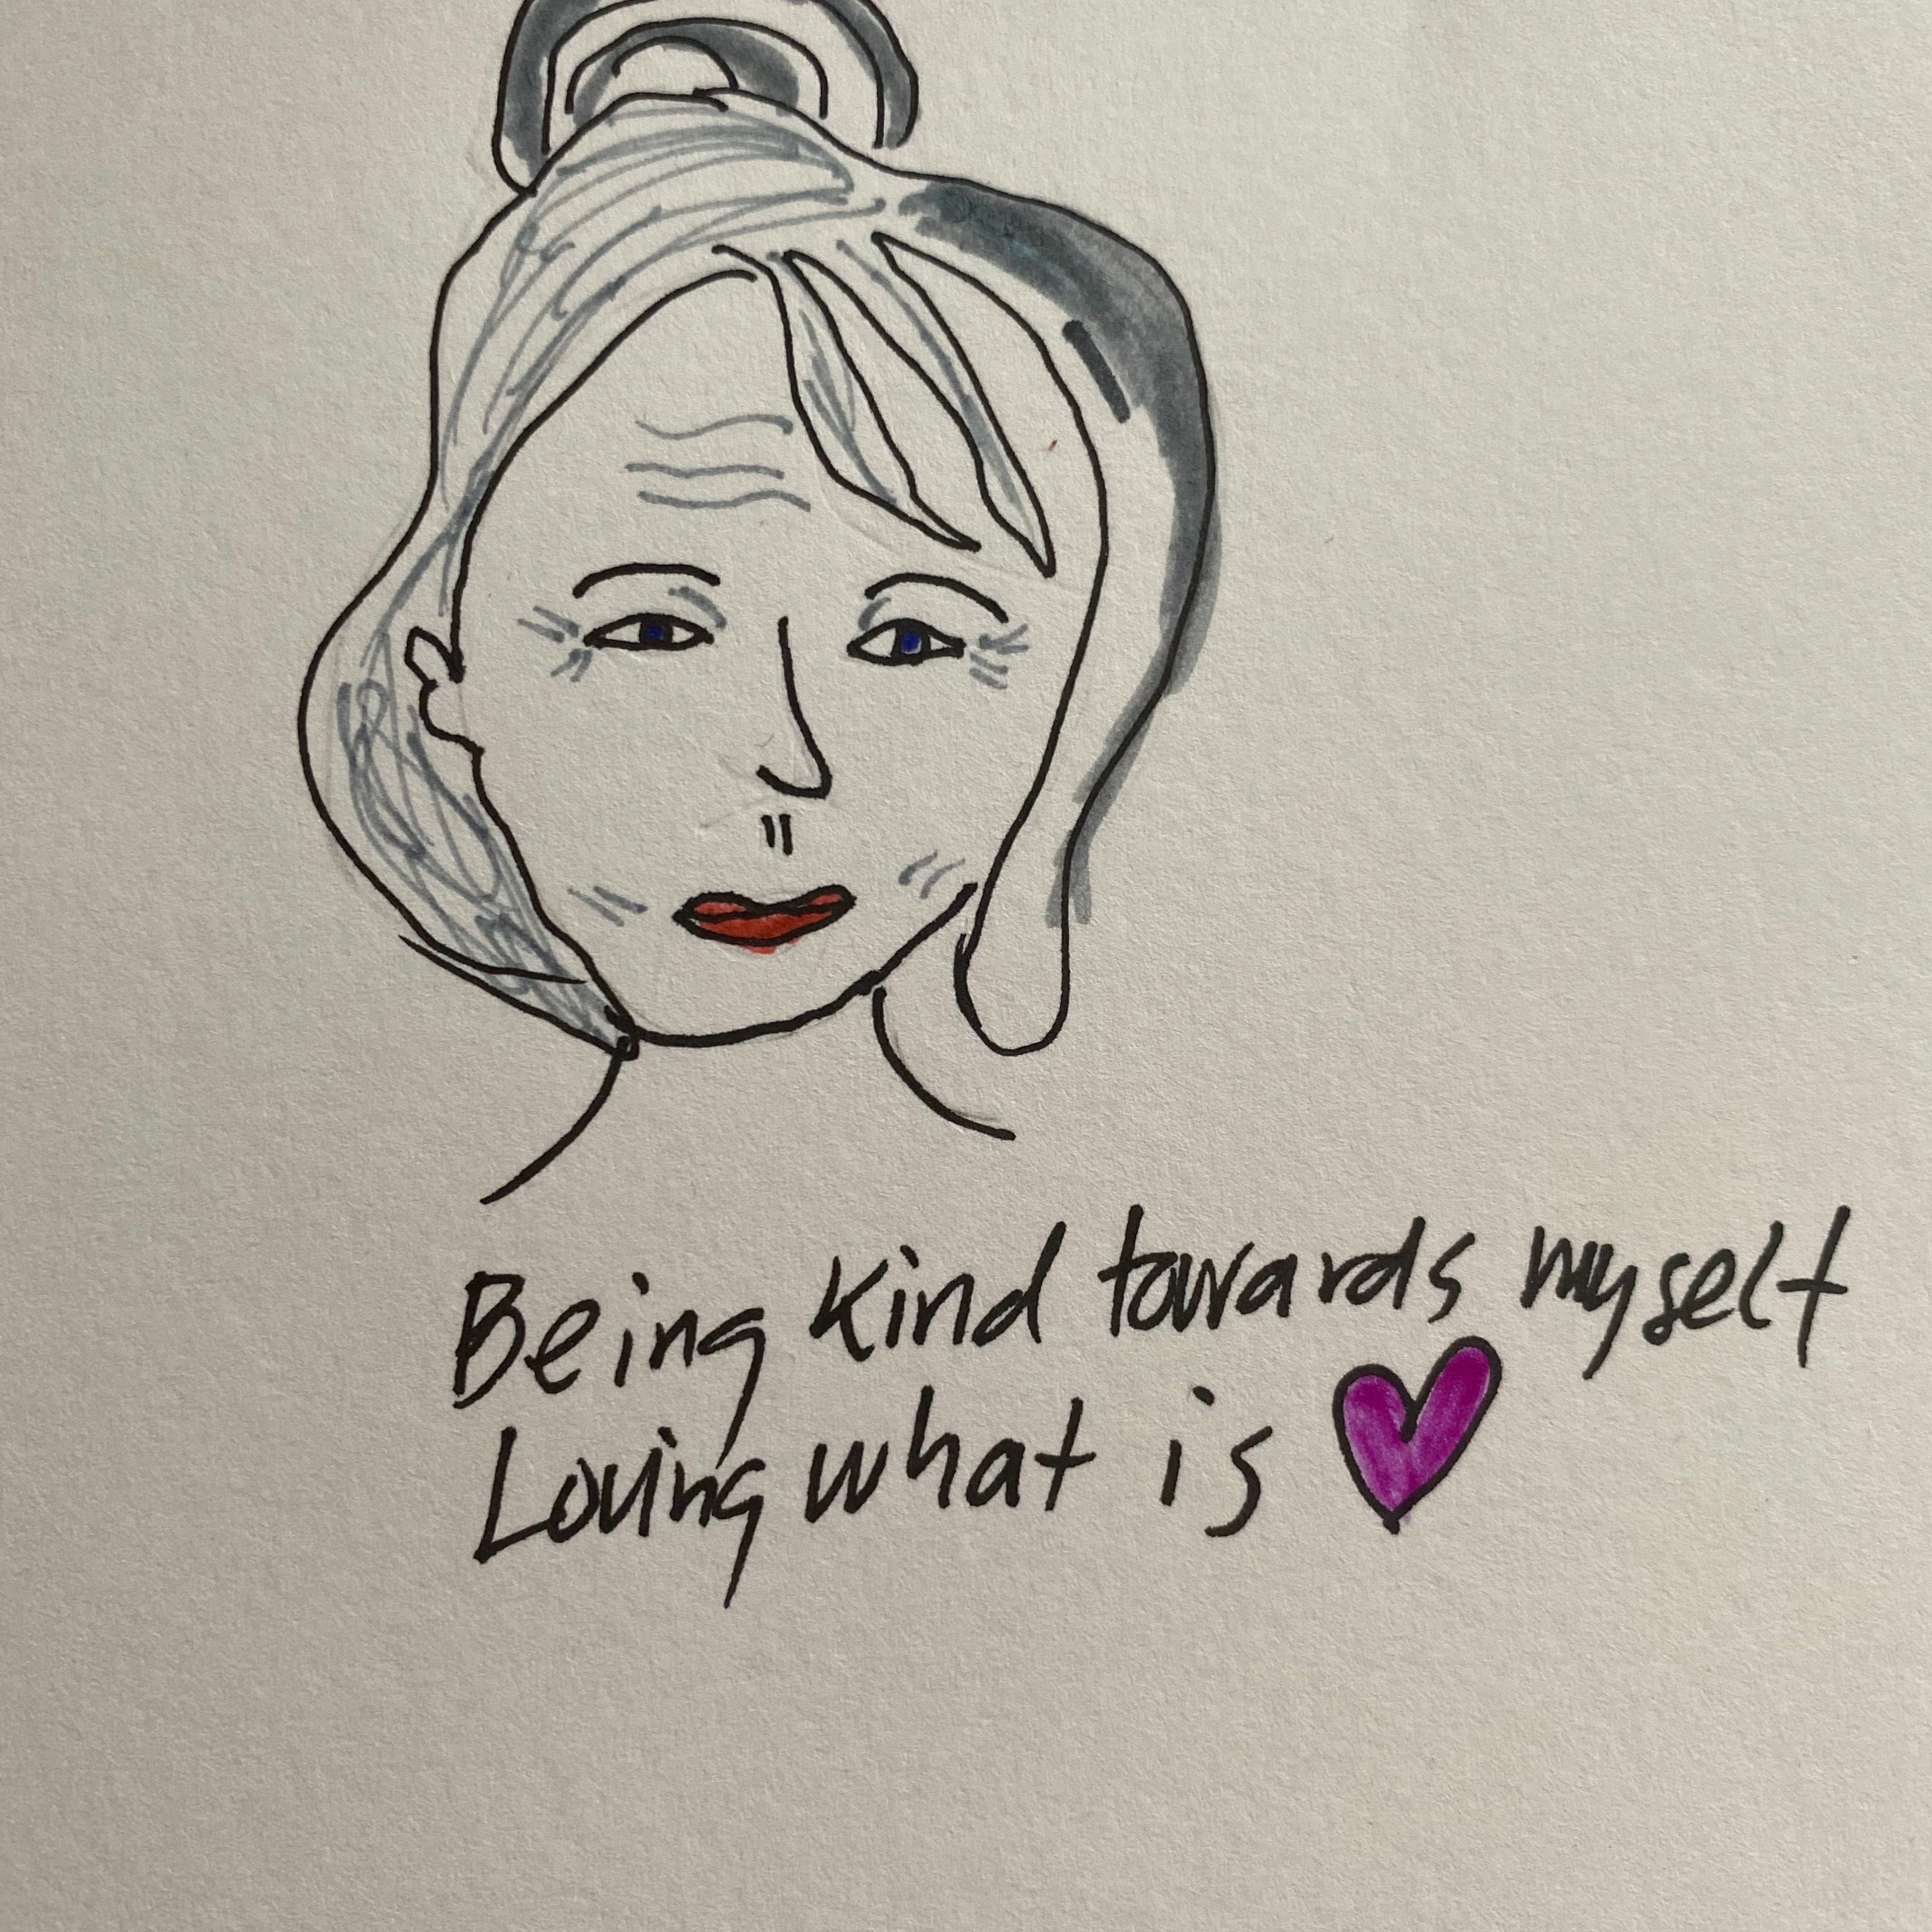 Being kind towards myself
Loving what is